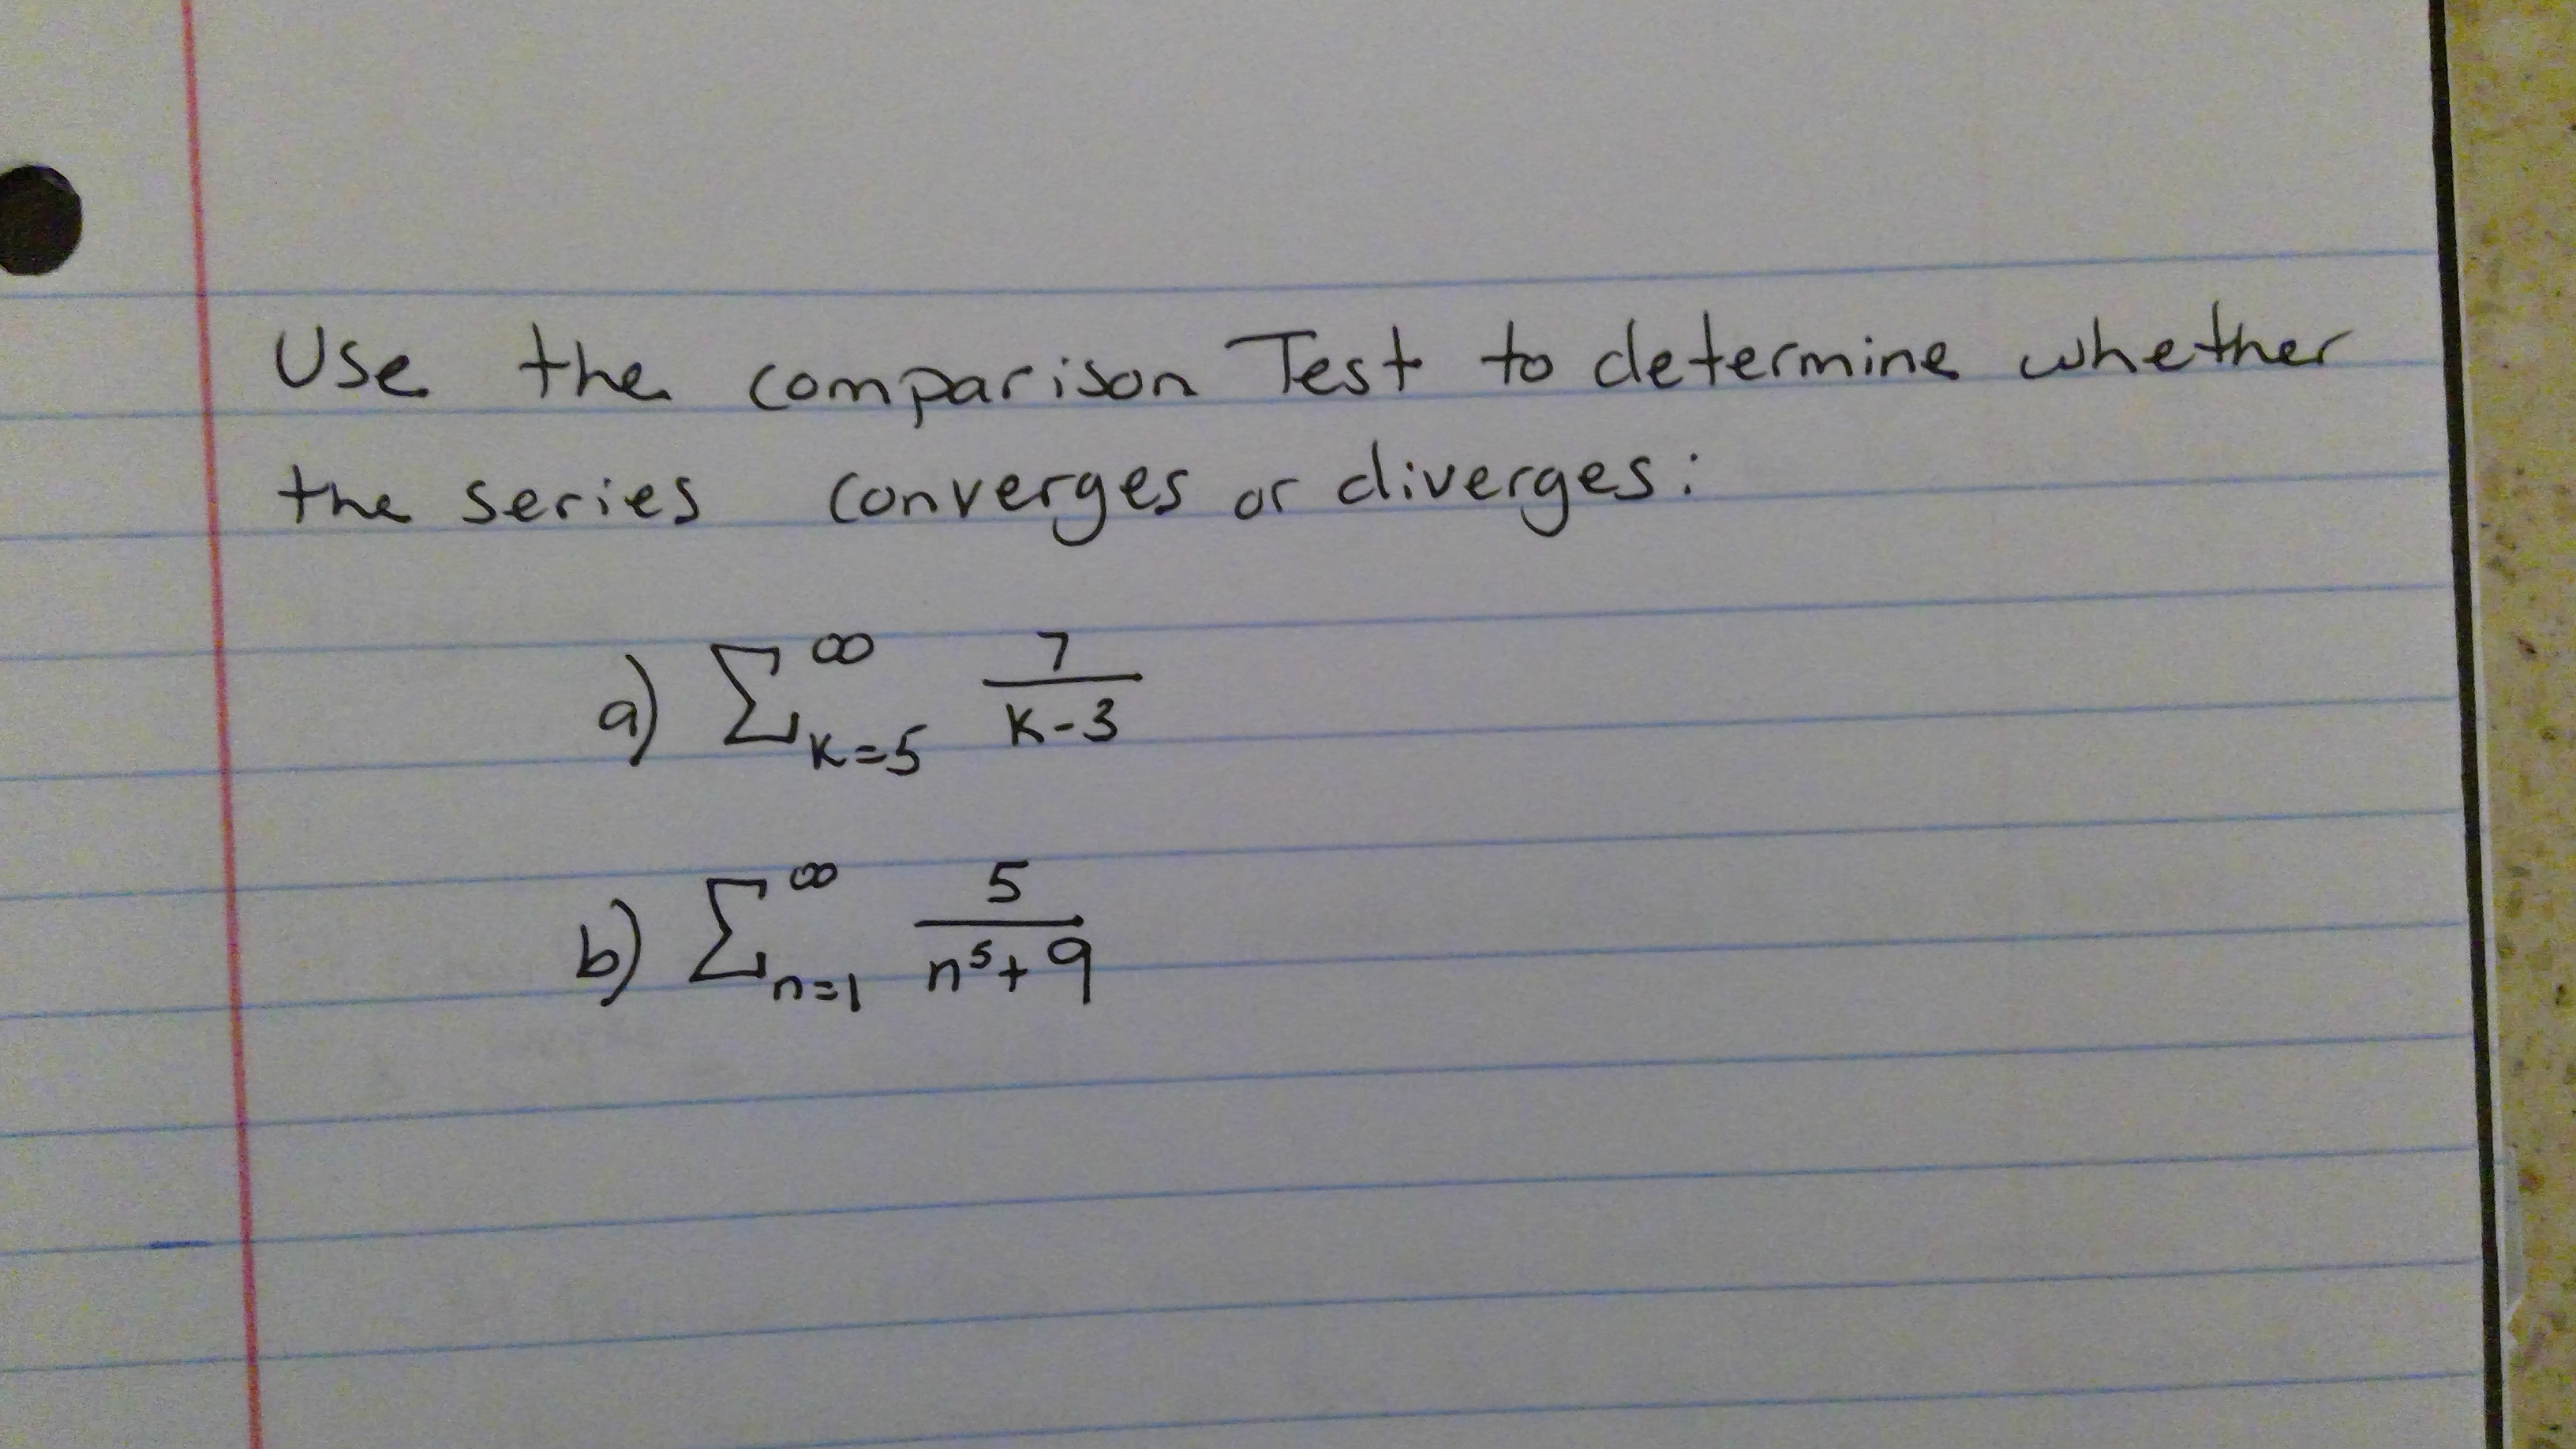 Use the comparison Test to determine whether
the series converges or diverges:
a) ∑_{k=5}^{∞} 7/(k-3)
b) ∑_{n=1}^{∞} 5/(n⁵+9)